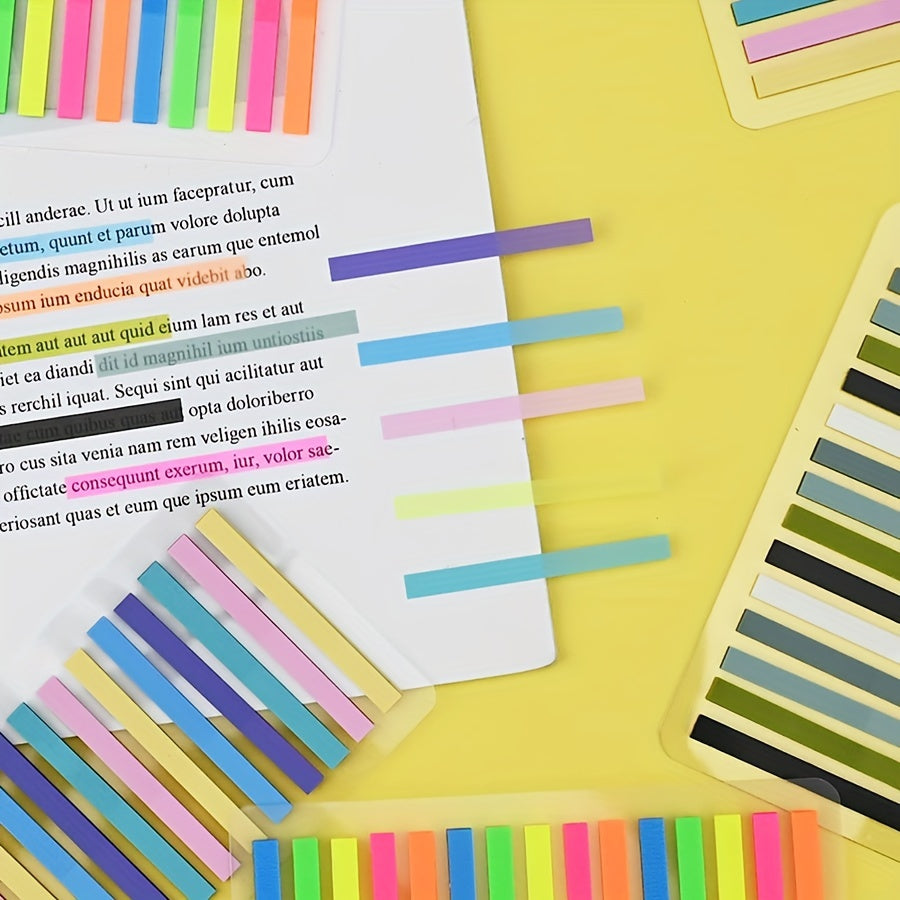 cill anderae. Ut ut ium facepratur, cum
etum, quunt et parum volore dolupta
ligendis magnihilis as earum que entemol
osum ium enducia quat videbit abo.
atem aut aut aut quid eium lam res et aut
iet ea diandi dit id magnihil ium untiostiis
s rerchil iquat. Sequi sint qui acilitatur aut
tae cum quibus quas aut opta doloriberro
ro cus sita venia nam rem veligen ihilis eosa-
offictate consequunt exerum, iur, volor sae-
eriosant quas et eum que ipsum eum eriatem.